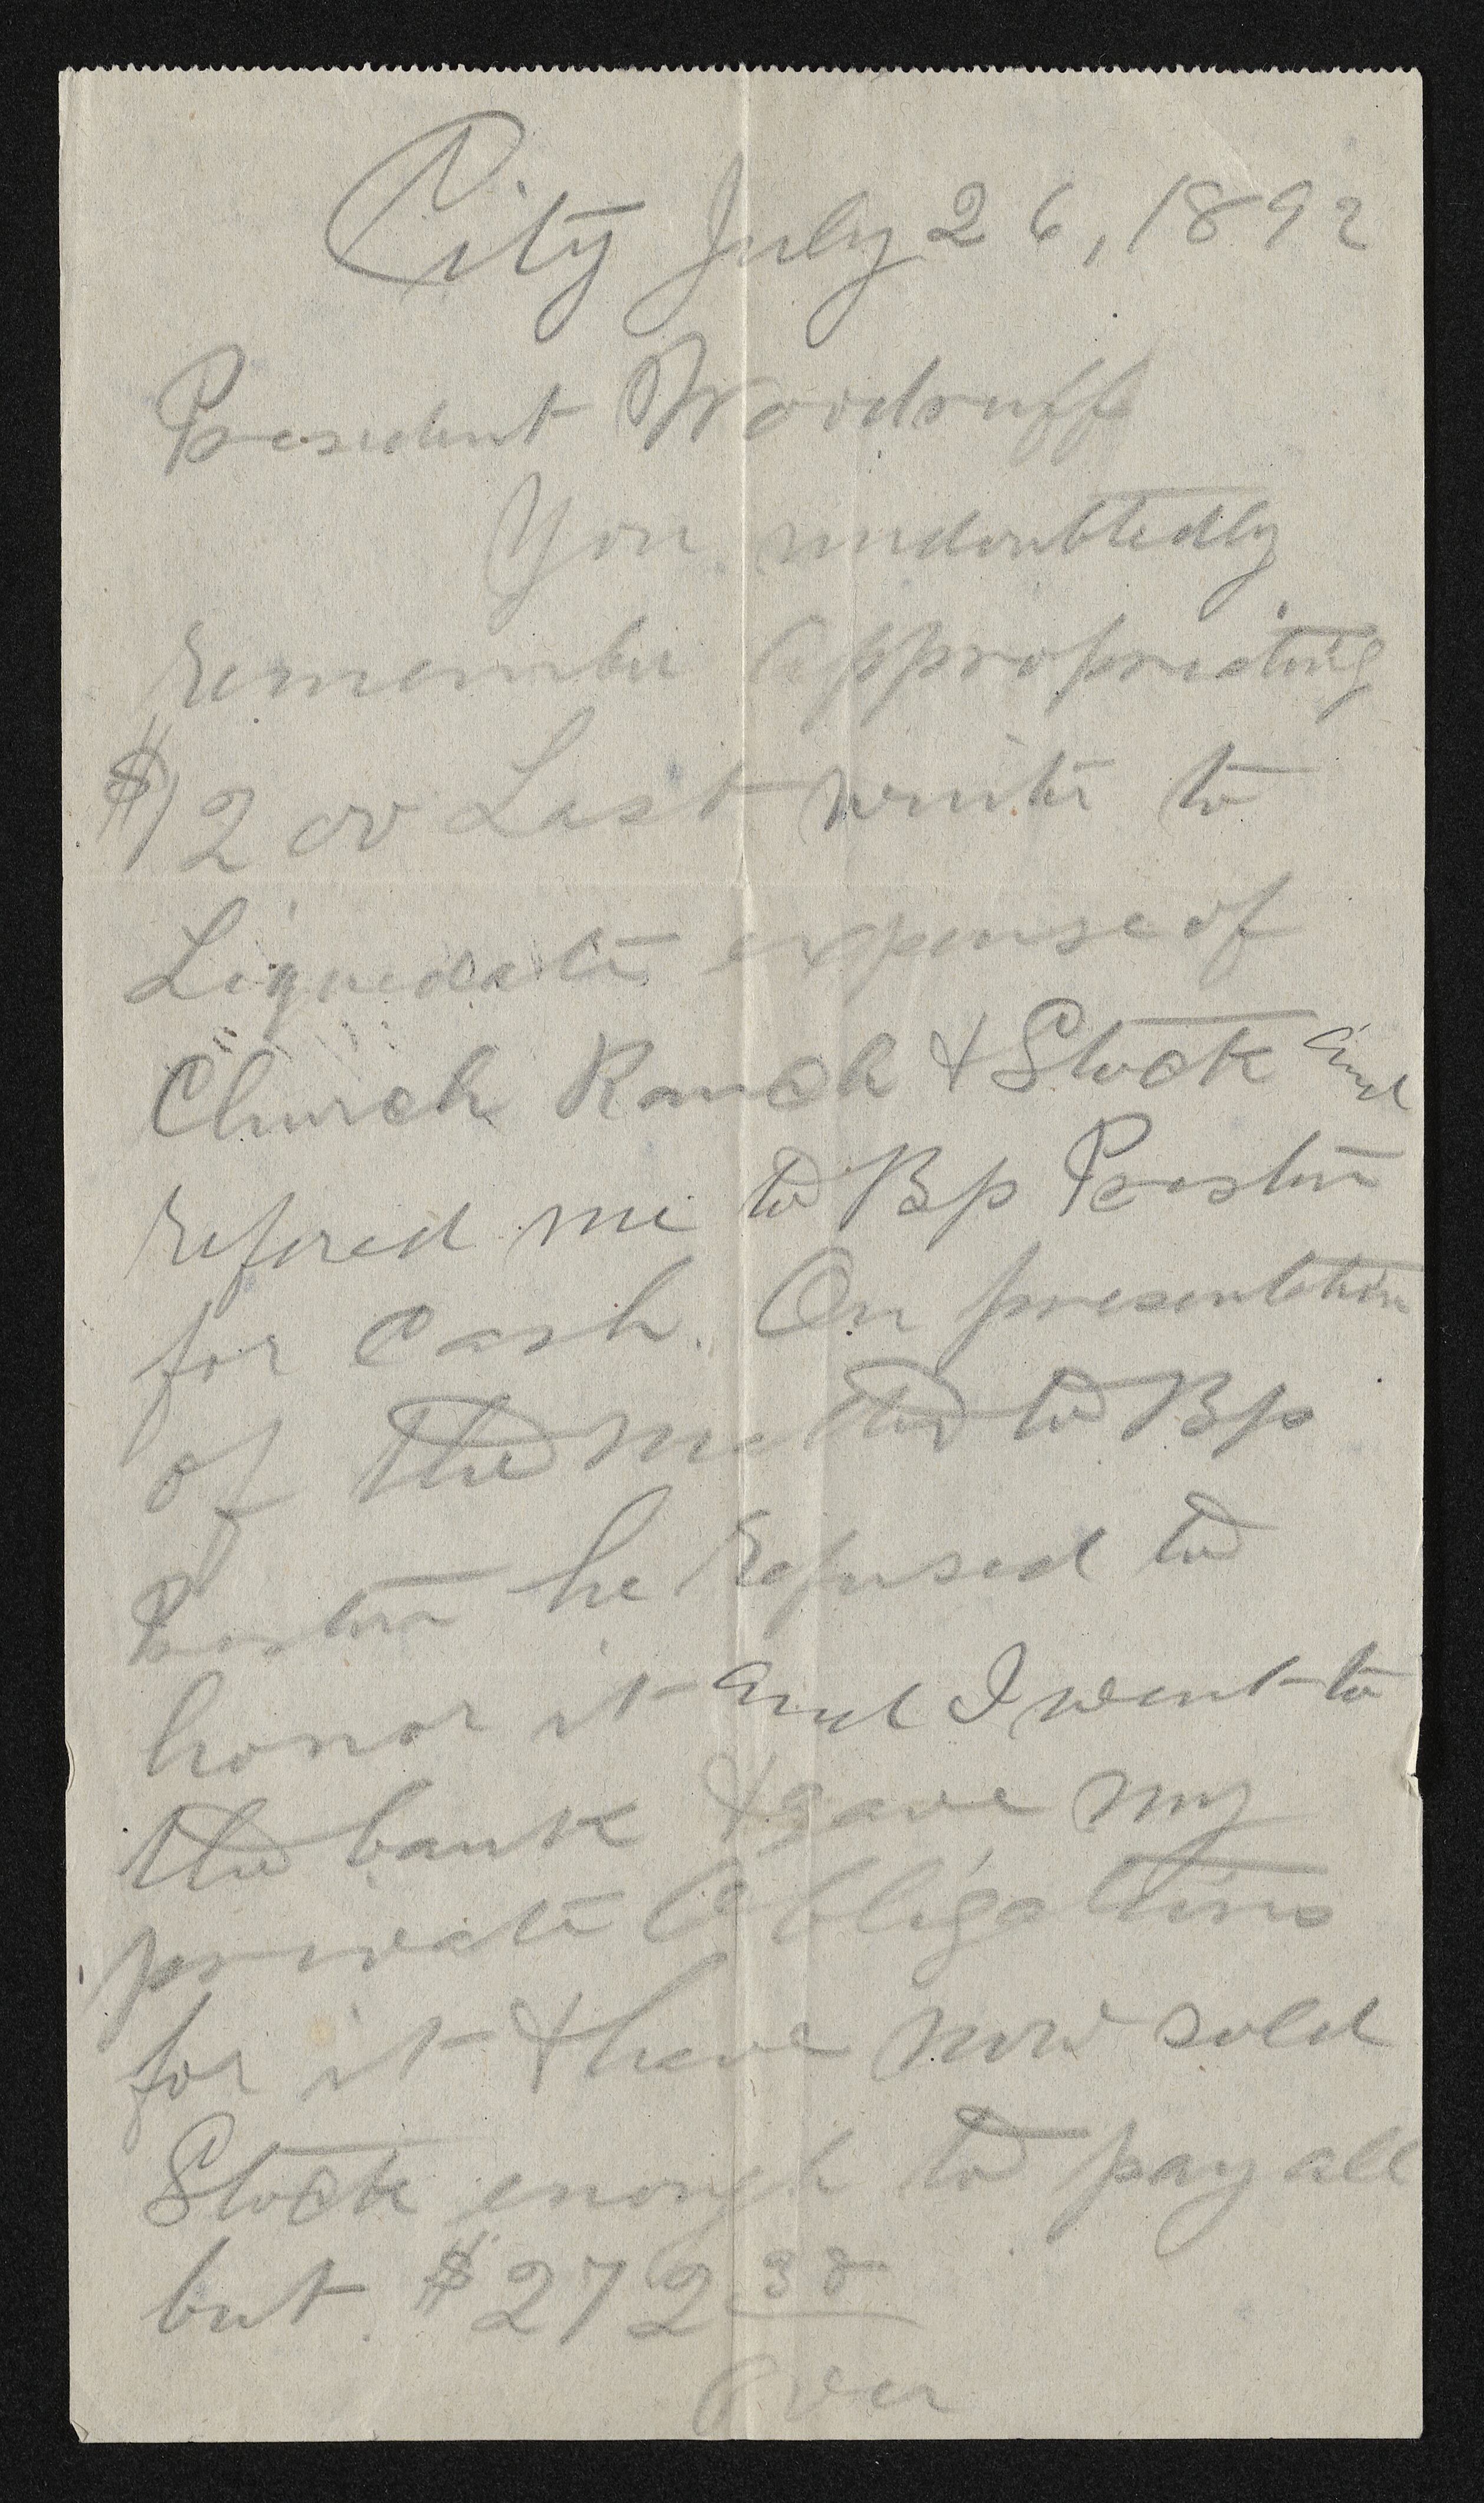 City July 26, 1892
President Woodruff
You undoubtedly
remember appropriating
$1200 Last winter to
Liquedate expense of
Church Ranch & Stock and
refered me to Bp Preston
for Cash. On presentation
of the matter to Bp
Preston he refused to
honor it and I went to
the bank & gave my
private Obligations
for it & have now sold
Stock enough to pay all
but $272 38
Over